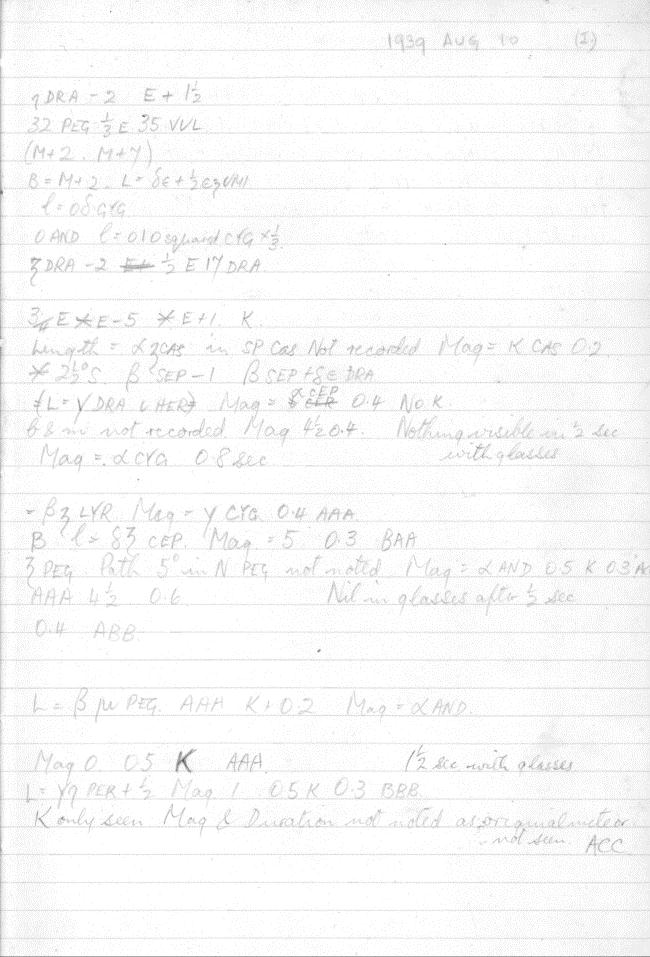 1939 AUG 10 (I.)
η DRA - 2 E + 1½
32 PEG ⅓ E 35 VUL
(M+2. M+Y)
B = M+2. L = δε + ½ εζ UMI
l = οδ CYG
O AND l = ο1ο squared CYG × ⅓
ζ DRA - 2 ½ E 17 DRA
¾ E * E - 5 * E + 1. K.
Length = α ζ CAS in SP Cas Not recorded Mag = K CAS 0.2
* 2½° S. β SEP - 1 β SEP + δε DRA
(L = γ DRA ι HER) Mag = α CEP 0.4 No K.
b & m not recorded. Mag 4½ 0.4. Nothing visible in ½ sec
Mag = α CYG 0.8 sec with glasses
= βζ LYR. Mag = γ CYG. 0.4 AAA.
B l = δζ CEP. Mag = 5 0.3 BAA
ζ PEG. Path 5° in N PEG not noted Mag = α AND 0.5 K 0.3
AAA 4½ 0.6 Nil in glasses after ½ sec
0.4 ABB.
L = β μ PEG. AAA K + 0.2 Mag = α AND.
Mag 0. 0.5 K AAA. 1½ sec with glasses
L = γη PER + ½ Mag 1 0.5 K 0.3 BBB.
K only seen Mag & Duration not noted as original meteor
not seen. ACC